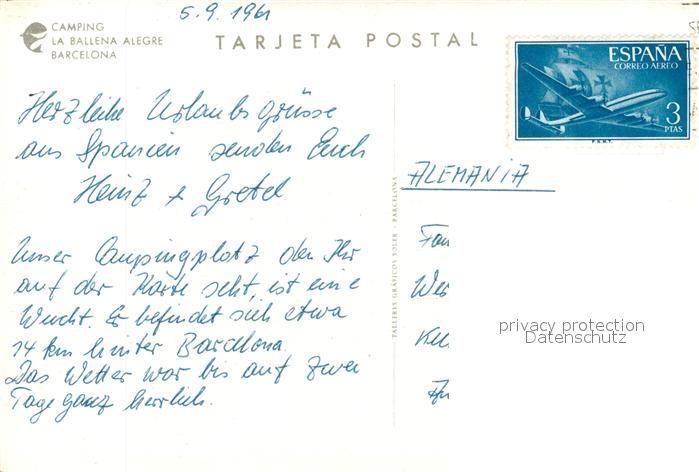 5.9.1961
CAMPING
LA BALLENA ALEGRE
BARCELONA
TARJETA POSTAL
ESPAÑA
CORREO AEREO
3
PTAS
F.N.M.T.
Herzliche Urlaubsgrüsse
aus Spanien senden Euch
Heinz + Gretel
Unser Campingplatz den Ihr
auf der Karte seht, ist eine
Wucht. Er befindet sich etwa
14 km hinter Barcelona.
Das Wetter war bis auf zwei
Tage ganz herrlich.
TALLERES GRÁFICOS SOLER - BARCELONA
ALEMANIA
Fam
Wer
privacy protection
Datenschutz